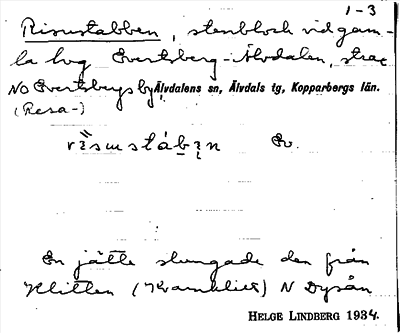 1-3
Risustabben, stenblock vid gam-
la vg Evertsberg - Älvdalen, strax
NO Evertsbergs by, Älvdalens sn, Älvdals tg, Kopparbergs län.
(Resa-)
Ev.
En jätte slungade den från
Klitten (Kramklitt) N Dysån
HELGE LINDBERG 1934.